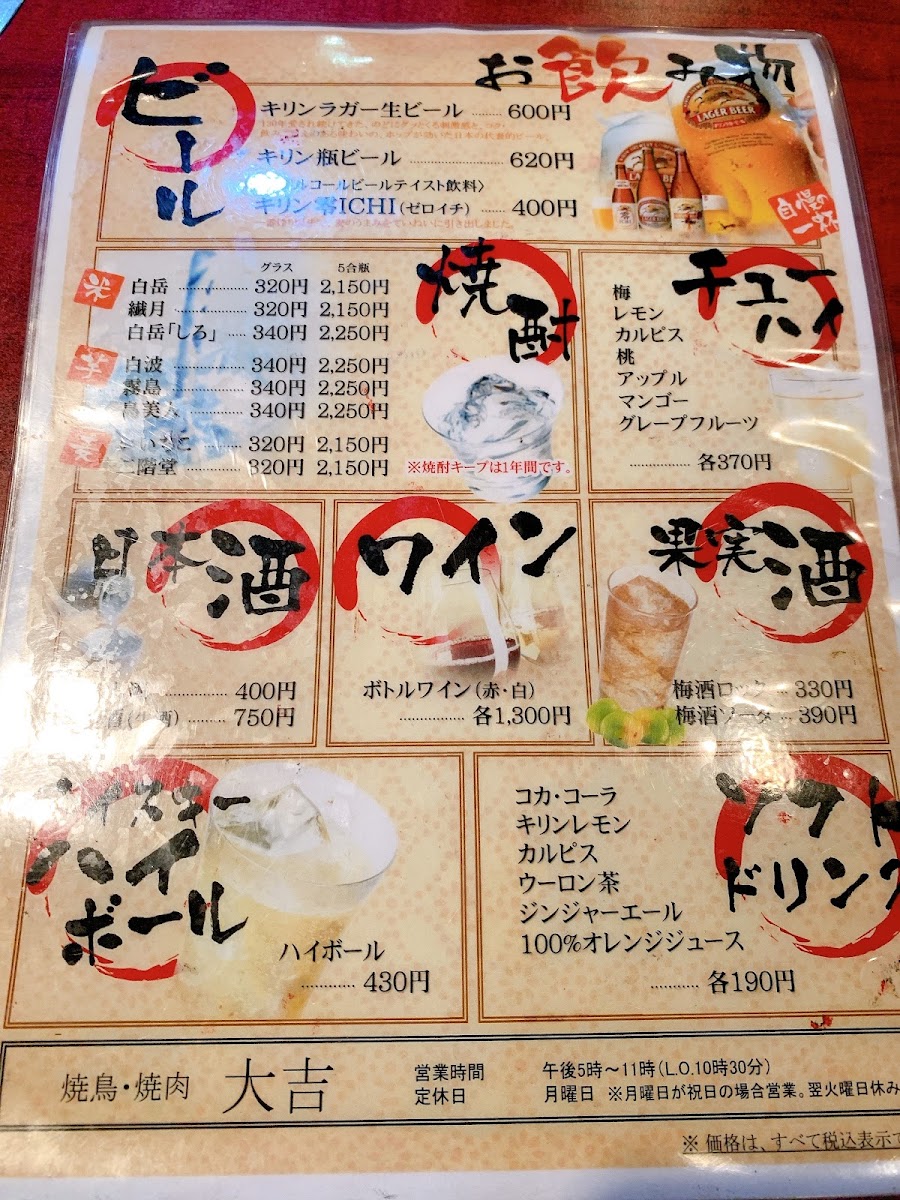 お飲み物
ビール
キリンラガー生ビール ...... 600円
キリン瓶ビール ...... 620円
ルコールビールテイスト飲料〉
キリン零ICHI(ゼロイチ) ...... 400円
LAGER BEER
自慢の
一杯
焼酎
グラス 5合瓶
米
白岳 ...... 320円 2,150円
繊月 ...... 320円 2,150円
白岳「しろ」 ...... 340円 2,250円
芋
白波 ...... 340円 2,250円
霧島 ...... 340円 2,250円
島美人 ...... 340円 2,250円
麦
いいちこ ...... 320円 2,150円
二階堂 ...... 320円 2,150円
※焼酎キープは1年間です。
チューハイ
梅
レモン
カルピス
桃
アップル
マンゴー
グレープフルーツ
...... 各370円
日本酒
...... 400円
酒(生酒) ...... 750円
ワイン
ボトルワイン(赤・白)
...... 各1,300円
果実酒
梅酒ロック ... 330円
梅酒ソーダ ... 390円
ウイスキー
ハイ
ボール
ハイボール
...... 430円
ソフト
ドリンク
コカ・コーラ
キリンレモン
カルピス
ウーロン茶
ジンジャーエール
100%オレンジジュース
...... 各190円
焼鳥・焼肉 大吉
営業時間 午後5時〜11時(L.O.10時30分)
定休日 月曜日 ※月曜日が祝日の場合営業。翌火曜日休み
※ 価格は、すべて税込表示で